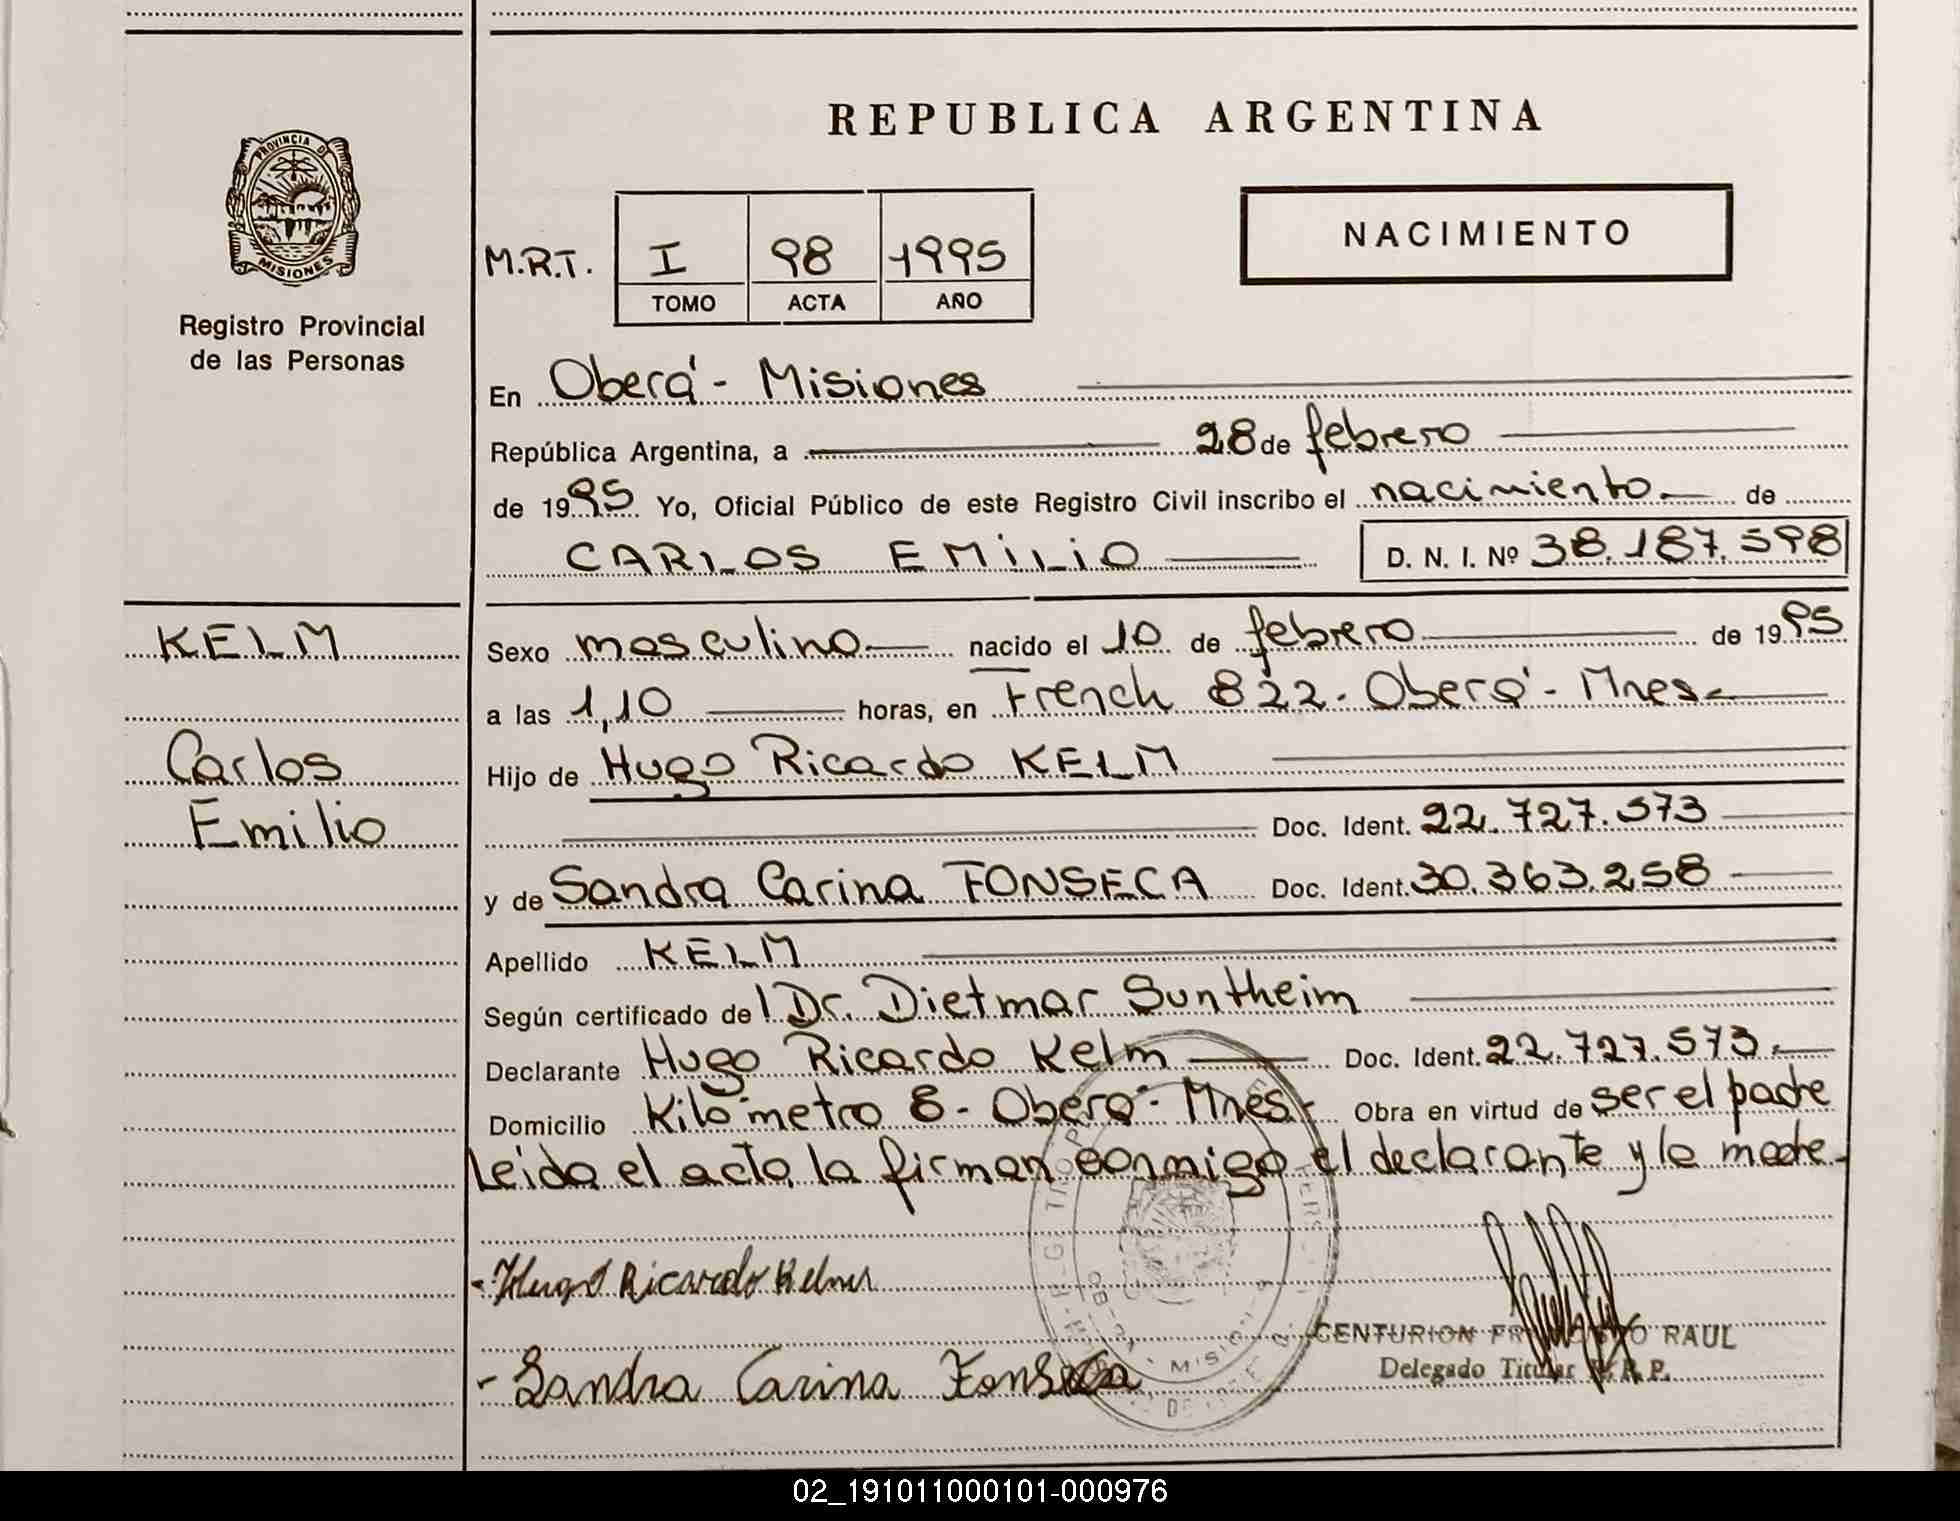 REPUBLICA ARGENTINA
PROVINCIA DE
MISIONES
Registro Provincial
de las Personas
NACIMIENTO
M.R.T. I 98 1995
TOMO ACTA AÑO
En Oberá - Misiones
República Argentina, a 28 de febrero
de 1995 Yo, Oficial Público de este Registro Civil inscribo el nacimiento de
CARLOS EMILIO D. N. I. Nº 38.187.598
KELM
Carlos
Emilio
Sexo masculino nacido el 10 de febrero de 1995
a las 1,10 horas, en French 822 - Oberá - Mnes.
Hijo de Hugo Ricardo KELM
Doc. Ident. 22.727.573
y de Sandra Carina FONSECA Doc. Ident. 30.363.258
Apellido KELM
Según certificado de Dr. Dietmar Suntheim
Declarante Hugo Ricardo Kelm Doc. Ident. 22.727.573.
Domicilio Kilómetro 8 - Oberá - Mnes. Obra en virtud de ser el padre
Leida el acta, la firman conmigo el declarante y la madre.
- Hugo Ricardo Kelm
- Sandra Carina Fonseca
CENTURION RAUL
Delegado Titular R. P. P.
02_191011000101-000976